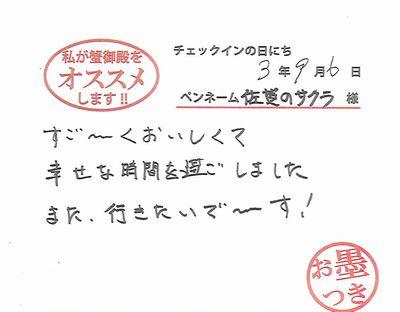 私が蟹御殿を
オススメ
します!!
チェックインの日にち
3年9月6日
ペンネーム 佐賀のサクラ 様
すご〜くおいしくて
幸せな時間を過ごしました
また、行きたいで〜す!
お墨
つき